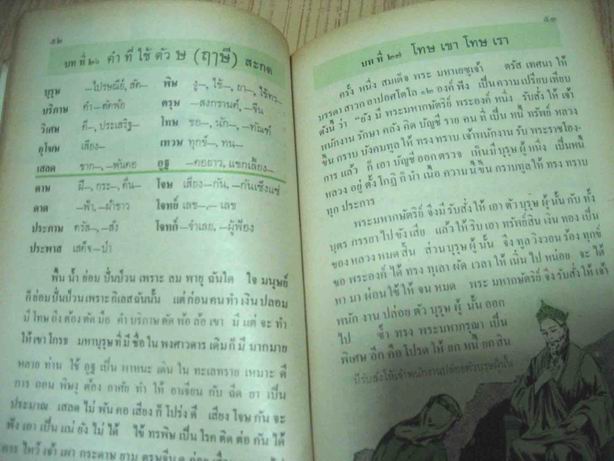 ๕๒
บท ที่ ๒๖ คำ ที่ ใช้ ตัว ษ (ฤาษี) สะกด
บุรุษ —ไปรษณีย์, สัก— พิษ งู—, ใช้—, ยา—, ไร้ทร—
บริภาษ คำ—ตัดพ้อ ครุษ —สงกรานต์, —จีน
วิเศษ ดี—, ประเสริฐ— โทษ ขอ—, นัก—, —ทัณฑ์
อุโฆษ เสียง— เทวษ ทุกข์—, —ทน—
เสลด ขาก—, —พันคอ อูฐ —คอยาว, แขกเลี้ยง—
ดาษ มี—, กระ—, ตื่น— โจษ เสียง—กัน, —กันเซ็งแซ่
ดาด —ฟ้า, —ผ้าขาว โจทย์ เลข—, —เลข
ประภาษ ตรัส—, —สั่ง โจทก์ —จำเลย, —ผู้ฟ้อง
ประพาส เสด็จ—ป่า
พื้น น้ำ ย่อม ปั่นป่วน เพราะ ลม พายุ ฉันใด ใจ มนุษย์
ก็ย่อม ปั่นป่วน เพราะ กิเลส ฉันนั้น แต่ ก่อน คน ทำ เงิน ปลอม
มี โทษ ถึง ต้อง ตัด มือ คำ บริภาษ ตัด พ้อ ล้อ เขา มี แต่ จะ ทำ
ให้ เขา โกรธ มหา บุรุษ ที่ มี ชื่อ ใน พงศาวดาร เดิม ก็ มี มาก มาย
หลาย ท่าน ใช้ อูฐ เป็น พาหนะ เดิน ใน ทะเลทราย เหมาะ ดี
การ ถอน พิษงู ต้อง อาศัย ทำ ให้ อาเจียน กับ ฉีด ยา เป็น
ประมาณ เสลด ไม่ พัน คอ เสียง ก็ โปร่ง ดี เสียง โจษ กัน จะ
ฟัง เอา เป็น แน่ ยัง ไม่ ได้ ไข้ ทรพิษ เป็น โรค ติด ต่อ กัน ได้
การ ไหว้ เจ้า เผา กระดาษ ยาม ตรุษจีน
๕๓
บท ที่ ๒๗ โทษ เขา โทษ เรา
ครั้ง หนึ่ง สมเด็จ พระ มหาเยซูเจ้า ตรัส เทศนา ให้
บรรดา สาวก อาปอสโตโล ๑๒ องค์ ฟัง เป็น ความ เปรียบ เทียบ
ดังนี้ ว่า “ยัง มี พระ มหากษัตริย์ พระองค์ หนึ่ง รับสั่ง ให้ เจ้า
พนักงาน รักษา คลัง คิด บัญชี ราย คน ที่ เป็น หนี้ ทรัพย์ หลวง
ขึ้น กราบ บังคมทูล ให้ ทรง ทราบ เจ้าพนักงาน รับ พระราชโอง-
การ แล้ว ก็ เอา บัญชี ออก ตรวจ เห็น มี บุรุษ ผู้ หนึ่ง เป็น หนี้
หลวง อยู่ ตั้ง โกฏิ ก็ นำ เนื้อ ความ นี้ ขึ้น กราบทูล ให้ ทรง ทราบ
ทุก ประการ
พระมหากษัตริย์ จึง มี รับสั่ง ให้ เอา ตัว บุรุษ ผู้ นั้น กับ ทั้ง
บุตร ภรรยา ไป ขัง เสีย แล้ว ให้ ริบ เอา ทรัพย์สิน เงิน ทอง เป็น
ของ หลวง หมด สิ้น ส่วน บุรุษ ผู้ นั้น จึง ทูล วิงวอน ร้อง ทุกข์
ขอ พระองค์ ได้ ทรง ทุเลา ผัด เวลา ให้ เนิ่น ไป หน่อย จะ ได้
หา มา ผ่อน ใช้ ให้ จน หมด พระ มหากษัตริย์ จึง รับสั่ง ให้ เจ้า
พนัก งาน ปล่อย ตัว บุรุษ ผู้ นั้น ออก
ไป ซ้ำ ทรง พระมหากรุณา เป็น
พิเศษ อีก คือ โปรด ให้ ยก หนี้ ยก สิน
มี รับสั่ง ให้ เจ้าพนักงาน ปล่อย ตัว บุรุษ